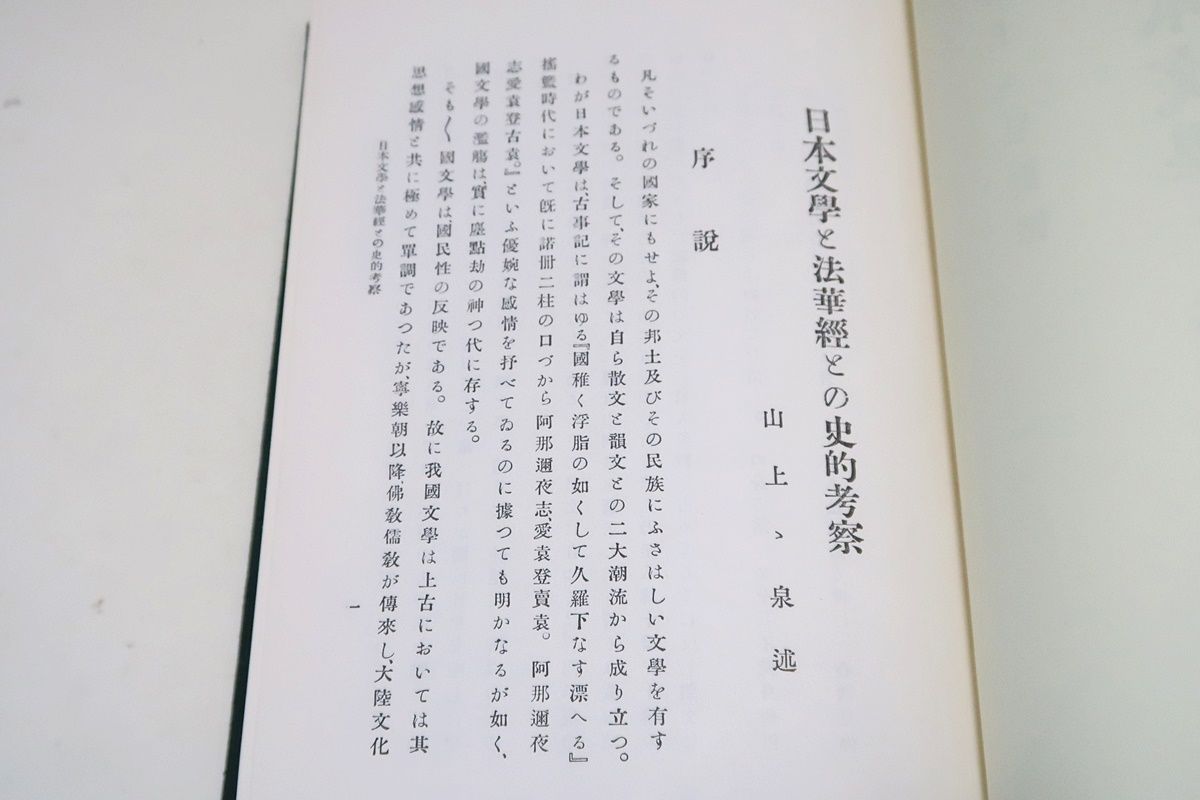 日本文學と法華經との史的考察
山上ゝ泉述
序說
凡そいづれの國家にもせよ、その邦土及びその民族にふさはしい文學を有す
るものである。そして、その文學は自ら散文と韻文との二大潮流から成り立つ。
わが日本文學は、古事記に謂はゆる『國稚く浮脂の如くして久羅下なす漂へる』
搖籃時代において旣に諾冊二柱の口づから阿那邇夜志、愛袁登賣袁。阿那邇夜
志愛袁登古袁。』といふ優婉な感情を抒べてゐるのに據つても明かなるが如く、
國文學の濫觴は、實に塵點劫の神つ代に存する。
そも〱國文學は、國民性の反映である。故に我國文學は上古においては其
思想感情と共に極めて單調であつたが、寧樂朝以降、佛敎儒敎が傳來し、大陸文化
日本文學と法華經との史的考察
一